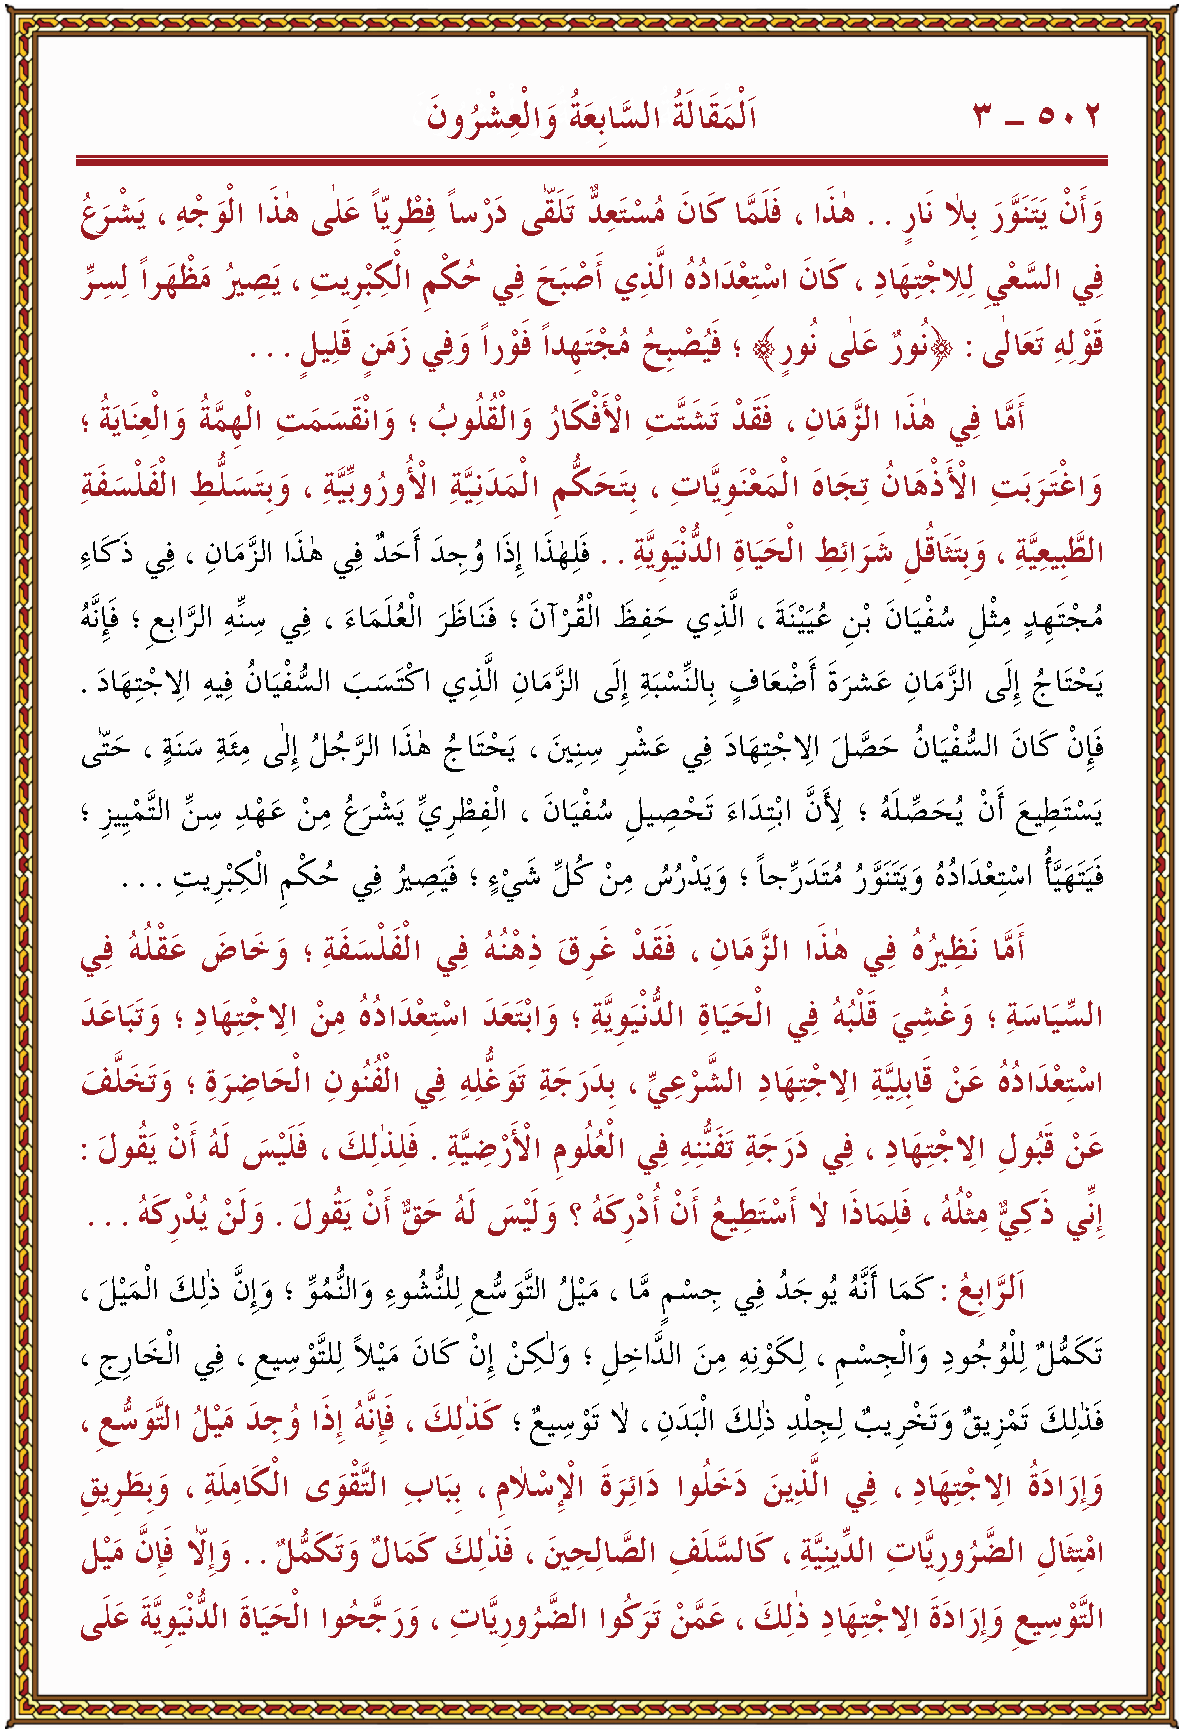 ٥٠٢ ـ ٣ اَلْمَقَالَةُ السَّابِعَةُ وَالْعِشْرُونَ
وَأَنْ يَتَنَوَّرَ بِلاٰ نَارٍ . . هٰذَا ، فَلَمَّا كَانَ مُسْتَعِدٌّ تَلَقّٰى دَرْساً فِطْرِيّاً عَلٰى هٰذَا الْوَجْهِ ، يَشْرَعُ
فِي السَّعْيِ لِلِاجْتِهَادِ ، كَانَ اسْتِعْدَادُهُ الَّذِي أَصْبَحَ فِي حُكْمِ الْكِبْرِيتِ ، يَصِيرُ مَظْهَراً لِسِرِّ
قَوْلِهِ تَعَالٰى : ﴿نُورٌ عَلٰى نُورٍ﴾ ؛ فَيُصْبِحُ مُجْتَهِداً فَوْراً وَفِي زَمَنٍ قَلِيلٍ . . .
أَمَّا فِي هٰذَا الزَّمَانِ ، فَقَدْ تَشَتَّتَ الْأَفْكَارُ وَالْقُلُوبُ ؛ وَانْقَسَمَتِ الْهِمَّةُ وَالْعِنَايَةُ ؛
وَاغْتَرَبَتِ الْأَذْهَانُ تِجَاهَ الْمَعْنَوِيَّاتِ ، بِتَحَكُّمِ الْمَدَنِيَّةِ الْأُورُوبِّيَّةِ ، وَبِتَسَلُّطِ الْفَلْسَفَةِ
الطَّبِيعِيَّةِ ، وَبِتَثَاقُلِ شَرَائِطِ الْحَيَاةِ الدُّنْيَوِيَّةِ . . فَلِهٰذَا إِذَا وُجِدَ أَحَدٌ فِي هٰذَا الزَّمَانِ ، فِي ذَكَاءِ
مُجْتَهِدٍ مِثْلِ سُفْيَانَ بْنِ عُيَيْنَةَ ، الَّذِي حَفِظَ الْقُرْآنَ ؛ فَنَاظَرَ الْعُلَمَاءَ ، فِي سِنِّهِ الرَّابِعِ ؛ فَإِنَّهُ
يَحْتَاجُ إِلَى الزَّمَانِ عَشَرَةَ أَضْعَافٍ بِالنِّسْبَةِ إِلَى الزَّمَانِ الَّذِي اكْتَسَبَ السُّفْيَانُ فِيهِ الِاجْتِهَادَ .
فَإِنْ كَانَ السُّفْيَانُ حَصَّلَ الِاجْتِهَادَ فِي عَشْرِ سِنِينَ ، يَحْتَاجُ هٰذَا الرَّجُلُ إِلٰى مِئَةِ سَنَةٍ ، حَتّٰى
يَسْتَطِيعَ أَنْ يُحَصِّلَهُ ؛ لِأَنَّ ابْتِدَاءَ تَحْصِيلِ سُفْيَانَ ، الْفِطْرِيِّ يَشْرَعُ مِنْ عَهْدِ سِنِّ التَّمْيِيزِ ؛
فَيَتَهَيَّأُ اسْتِعْدَادُهُ وَيَتَنَوَّرُ مُتَدَرِّجاً ؛ وَيَدْرُسُ مِنْ كُلِّ شَيْءٍ ؛ فَيَصِيرُ فِي حُكْمِ الْكِبْرِيتِ . . .
أَمَّا نَظِيرُهُ فِي هٰذَا الزَّمَانِ ، فَقَدْ غَرِقَ ذِهْنُهُ فِي الْفَلْسَفَةِ ؛ وَخَاضَ عَقْلُهُ فِي
السِّيَاسَةِ ؛ وَغُشِيَ قَلْبُهُ فِي الْحَيَاةِ الدُّنْيَوِيَّةِ ؛ وَابْتَعَدَ اسْتِعْدَادُهُ مِنْ الِاجْتِهَادِ ؛ وَتَبَاعَدَ
اسْتِعْدَادُهُ عَنْ قَابِلِيَّةِ الِاجْتِهَادِ الشَّرْعِيِّ ، بِدَرَجَةِ تَوَغُّلِهِ فِي الْفُنُونِ الْحَاضِرَةِ ؛ وَتَخَلَّفَ
عَنْ قَبُولِ الِاجْتِهَادِ ، فِي دَرَجَةِ تَفَنُّنِهِ فِي الْعُلُومِ الْأَرْضِيَّةِ . فَلِذٰلِكَ ، فَلَيْسَ لَهُ أَنْ يَقُولَ :
إِنِّي ذَكِيٌّ مِثْلُهُ ، فَلِمَاذَا لاٰ أَسْتَطِيعُ أَنْ أُدْرِكَهُ ؟ وَلَيْسَ لَهُ حَقٌّ أَنْ يَقُولَ . وَلَنْ يُدْرِكَهُ . . .
اَلرَّابِعُ : كَمَا أَنَّهُ يُوجَدُ فِي جِسْمٍ مَّا ، مَيْلُ التَّوَسُّعِ لِلنُّشُوءِ وَالنُّمُوِّ ؛ وَإِنَّ ذٰلِكَ الْمَيْلَ ،
تَكَمُّلٌ لِلْوُجُودِ وَالْجِسْمِ ، لِكَوْنِهِ مِنَ الدَّاخِلِ ؛ وَلٰكِنْ إِنْ كَانَ مَيْلاً لِلتَّوْسِيعِ ، فِي الْخَارِجِ ،
فَذٰلِكَ تَمْزِيقٌ وَتَخْرِيبٌ لِجِلْدِ ذٰلِكَ الْبَدَنِ ، لاٰ تَوْسِيعٌ ؛ كَذٰلِكَ ، فَإِنَّهُ إِذَا وُجِدَ مَيْلُ التَّوَسُّعِ ،
وَإِرَادَةُ الِاجْتِهَادِ ، فِي الَّذِينَ دَخَلُوا دَائِرَةَ الْإِسْلاٰمِ ، بِبَابِ التَّقْوَى الْكَامِلَةِ ، وَبِطَرِيقِ
امْتِثَالِ الضَّرُورِيَّاتِ الدِّينِيَّةِ ، كَالسَّلَفِ الصَّالِحِينَ ، فَذٰلِكَ كَمَالٌ وَتَكَمُّلٌ . . وَإِلاّٰ فَإِنَّ مَيْلَ
التَّوْسِيعِ وَإِرَادَةَ الِاجْتِهَادِ ذٰلِكَ ، عَمَّنْ تَرَكُوا الضَّرُورِيَّاتِ ، وَرَجَّحُوا الْحَيَاةَ الدُّنْيَوِيَّةَ عَلَى